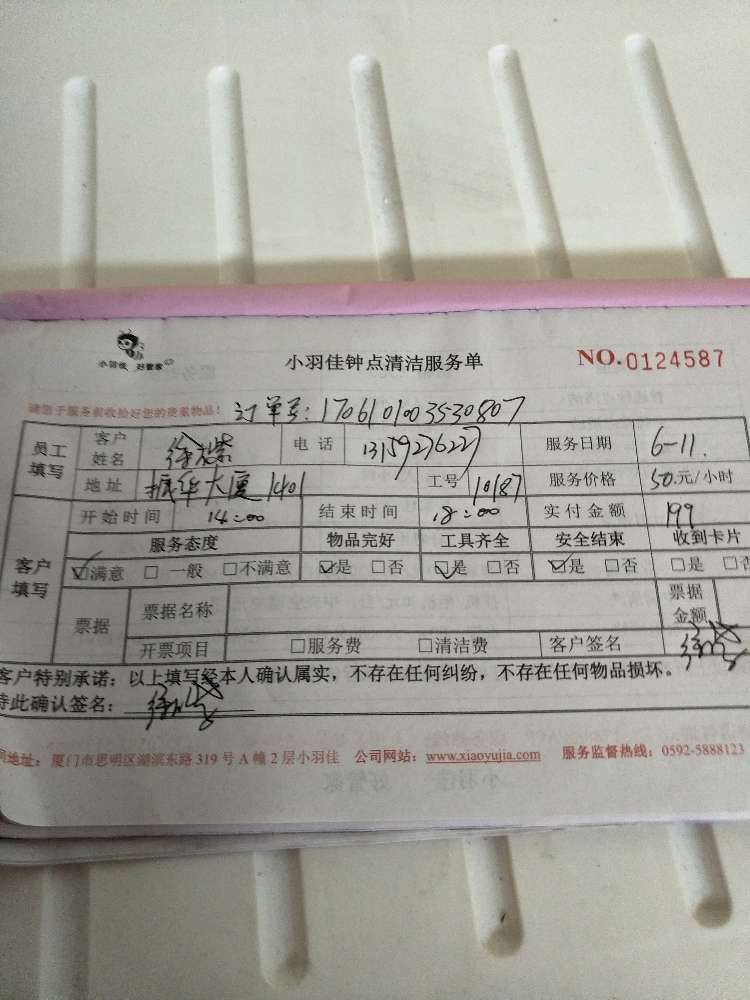 小羽佳 好管家
小羽佳钟点清洁服务单
NO.0124587
请您于服务前收捡好您的贵重物品! 订单号:17061010035 30807
员工填写 客户姓名 徐 电话 13159276227 服务日期 6-11.
地址 振华大厦1401 工号 10187 服务价格 50.元/小时
客户填写 开始时间 14:00 结束时间 18:00 实付金额 199
服务态度 物品完好 工具齐全 安全结束 收到卡片
☑满意 □一般 □不满意 ☑是 □否 ☑是 □否 ☑是 □否 □是 □否
票据 票据名称 票据金额
开票项目 □服务费 □清洁费 客户签名
客户特别承诺：以上填写经本人确认属实，不存在任何纠纷，不存在任何物品损坏。
特此确认签名：
地址：厦门市思明区湖滨东路 319 号 A 幢 2 层小羽佳 公司网站：www.xiaoyujia.com 服务监督热线：0592-5888123